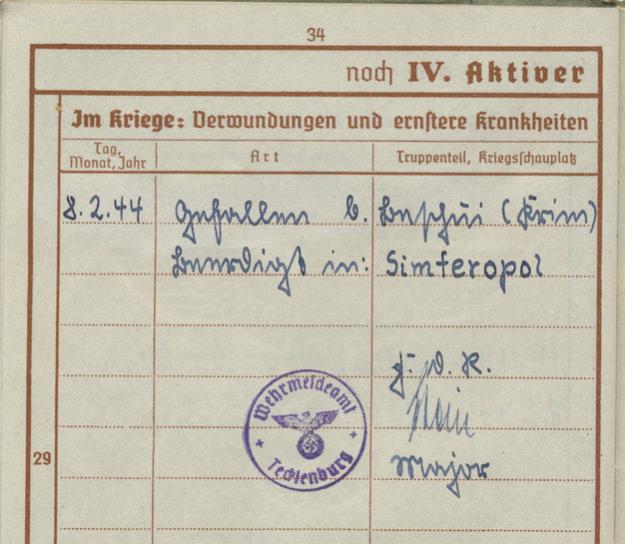 34
noch IV. Aktiver
Im Kriege: Verwundungen und ernstere Krankheiten
Tag, Monat, Jahr
Art
Truppenteil, Kriegsschauplatz
8.2.44 Gefallen b. Beschüi (Krim)
Beerdigt in: Simferopol
F. d. R.
Major
Wehrmeldeamt
Tecklenburg
29